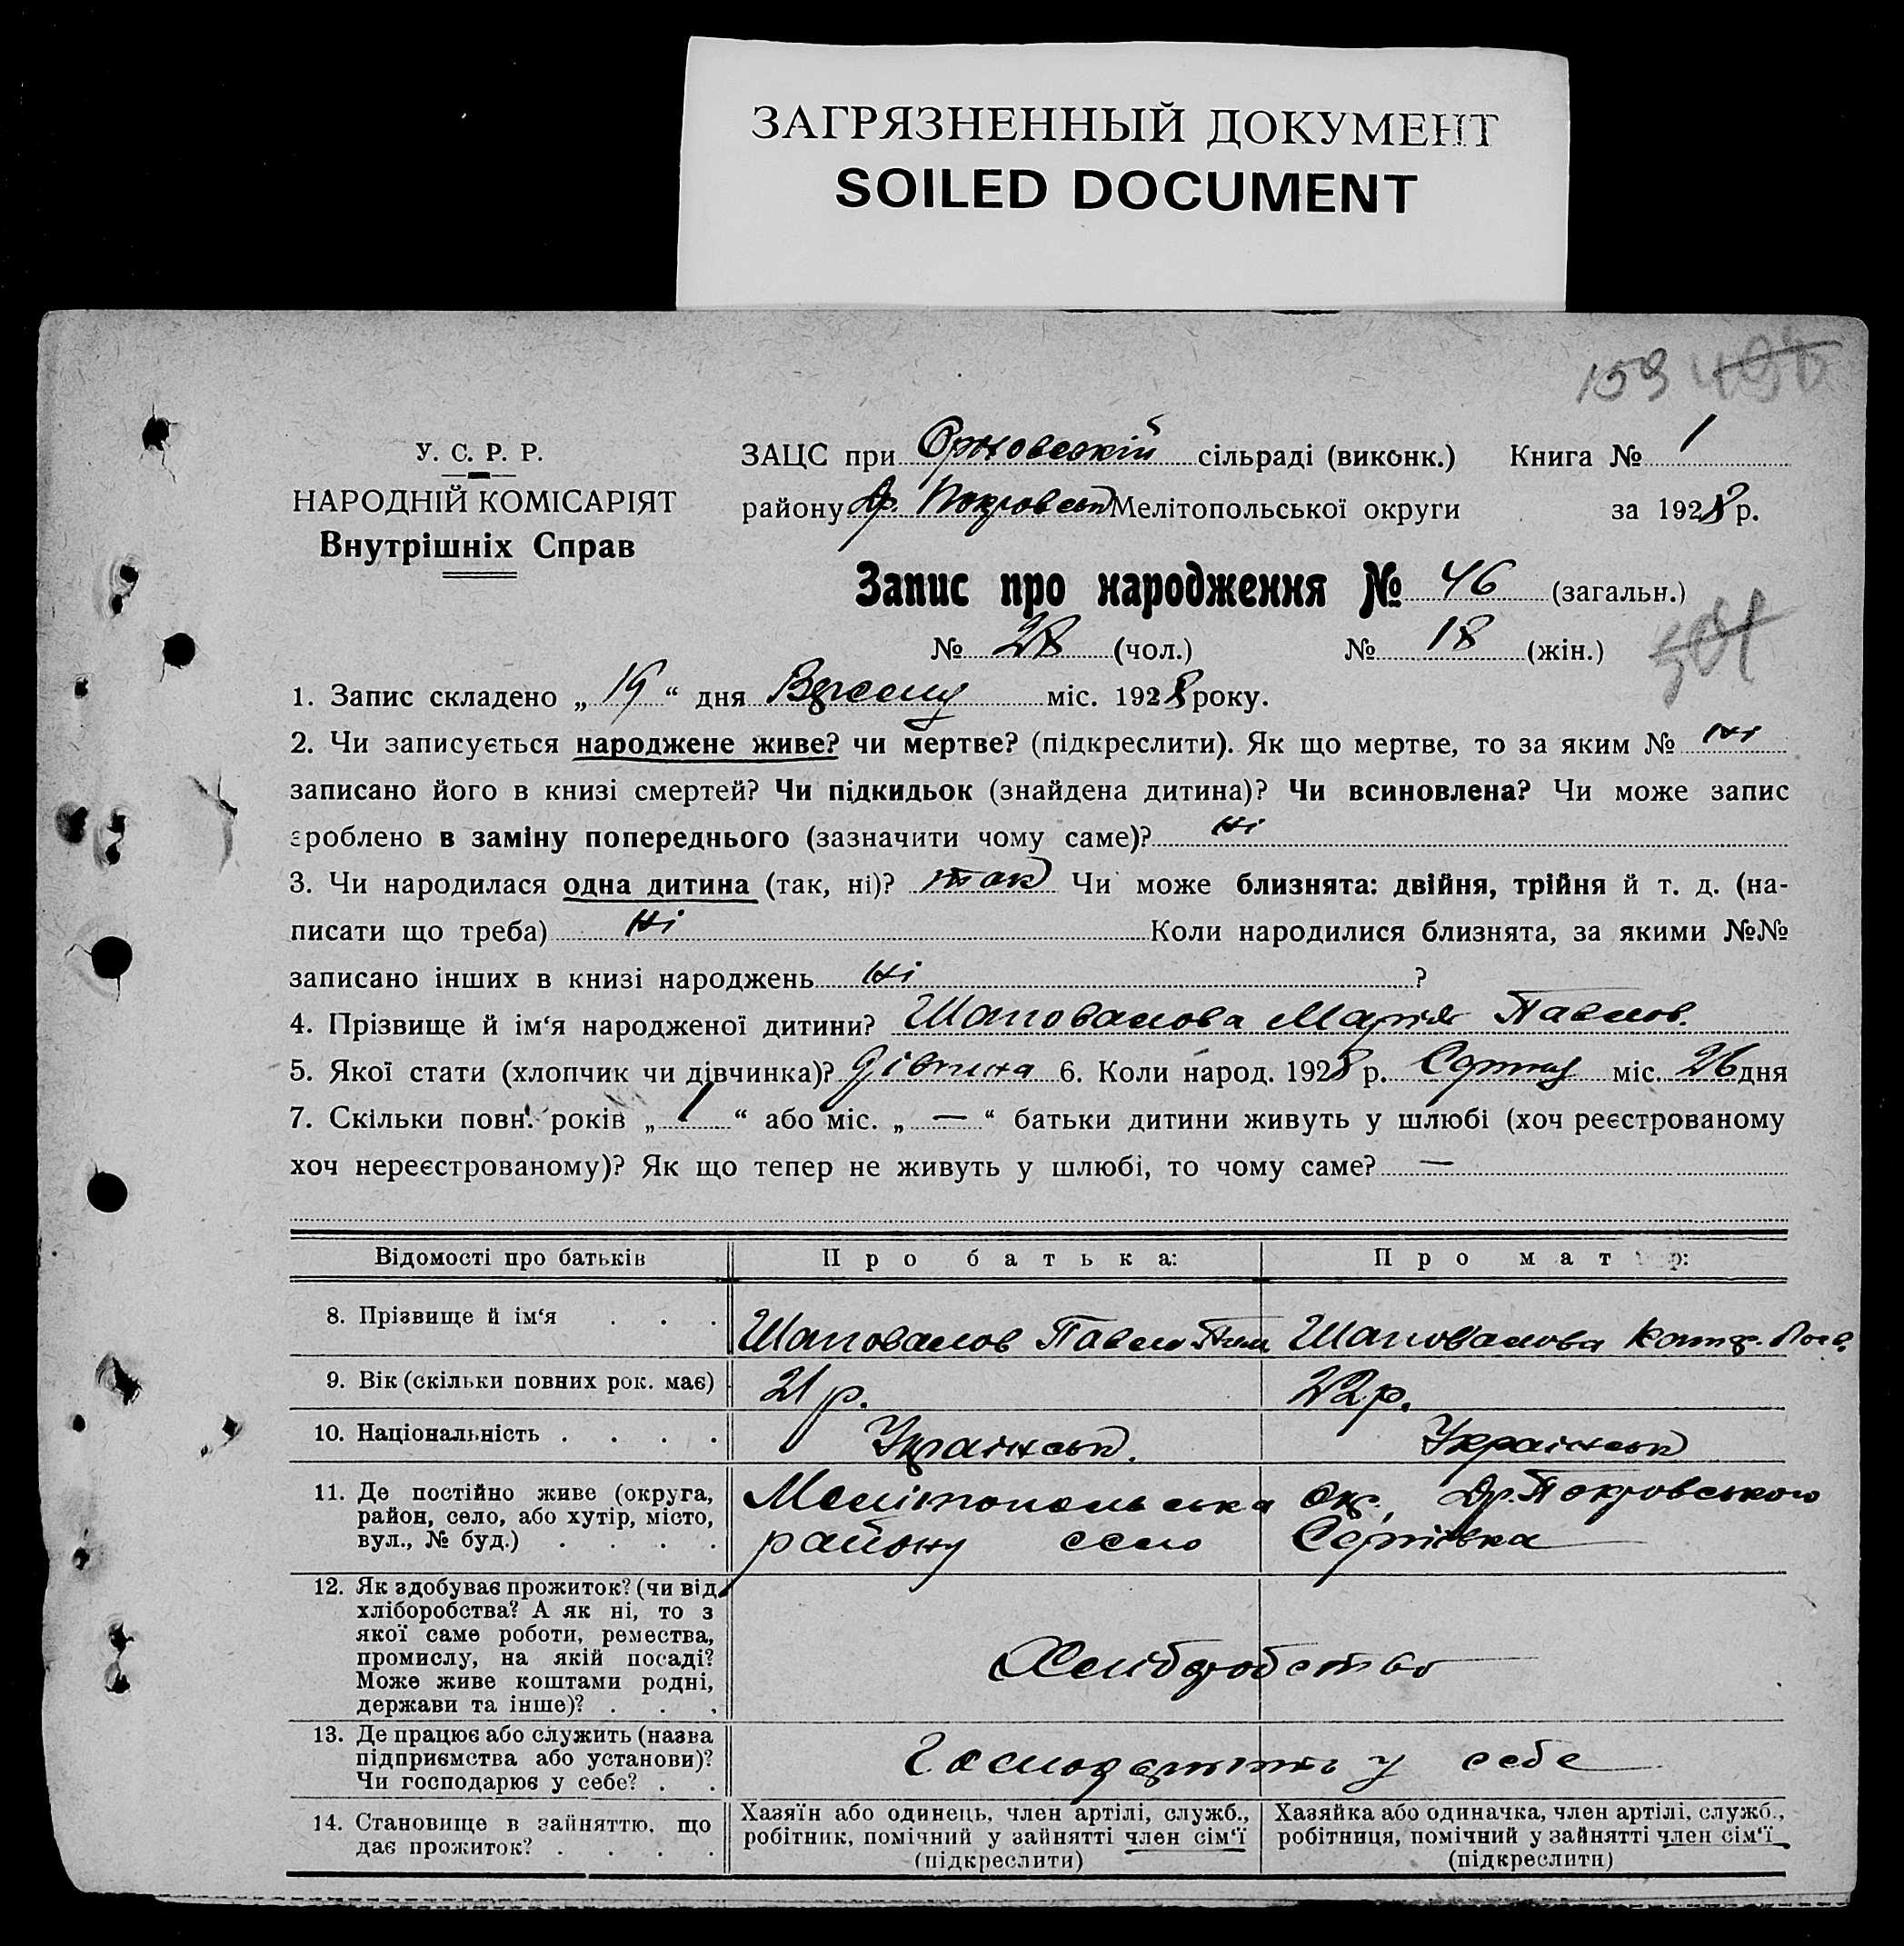 ЗАГРЯЗНЕННЫЙ ДОКУМЕНТ
SOILED DOCUMENT
159
У. С. Р. Р.
НАРОДНІЙ КОМІСАРІЯТ
Внутрішніх Справ
ЗАЦС при сільраді (виконк.) Книга № 1
району Др. Покровськ Мелітопольської округи за 1928 р.
Запис про народження № 46 (загальн.)
№ 28 (чол.) № 18 (жін.)
501
1. Запис складено „ 19 “ дня міс. 1928 року.
2. Чи записується народжене живе? чи мертве? (підкреслити). Як що мертве, то за яким № ні
записано його в книзі смертей? Чи підкидьок (знайдена дитина)? Чи всиновлена? Чи може запис
зроблено в заміну попереднього (зазначити чому саме)? ні
3. Чи народилася одна дитина (так, ні)? так Чи може близнята: двійня, трійня й т. д. (на-
писати що треба) ні Коли народилися близнята, за якими №№
записано інших в книзі народжень ні ?
4. Прізвище й ім‘я народженої дитини? Шаповалова Марія Павлов.
5. Якої стати (хлопчик чи дівчинка)? дівчина 6. Коли народ. 1928 р. міс. 26 дня
7. Скільки повн. років „ 1 “ або міс. „ — “ батьки дитини живуть у шлюбі (хоч реєстрованому
хоч нереєстрованому)? Як що тепер не живуть у шлюбі, то чому саме? —
Відомості про батьків Про батька: Про матір:
8. Прізвище й ім‘я . . . Шаповалов Павло Шаповалова Катер.
9. Вік (скільки повних рок. має) 21 р. 22 р.
10. Національність . . . . Українськ. Українськ
11. Де постійно живе (округа, район, село, або хутір, місто, вул., № буд.) . . . . Мелітопольська ок., Др. Покровського
району село
12. Як здобуває прожиток? (чи від
хліборобства? А як ні, то з
якої саме роботи, ремества,
промислу, на якій посаді?
Може живе коштами родні,
держави та інше)? . . . Хліборобство
13. Де працює або служить (назва
підприємства або установи)?
Чи господарює у себе? . . Господарють у себе
14. Становище в зайняттю, що
дає прожиток? . . . .
Хазяїн або одинець, член артілі, служб.,
робітник, помічний у зайнятті член сім‘ї
(підкреслити)
Хазяйка або одиначка, член артілі, служб.,
робітниця, помічний у зайнятті член сім‘ї
(підкреслити)